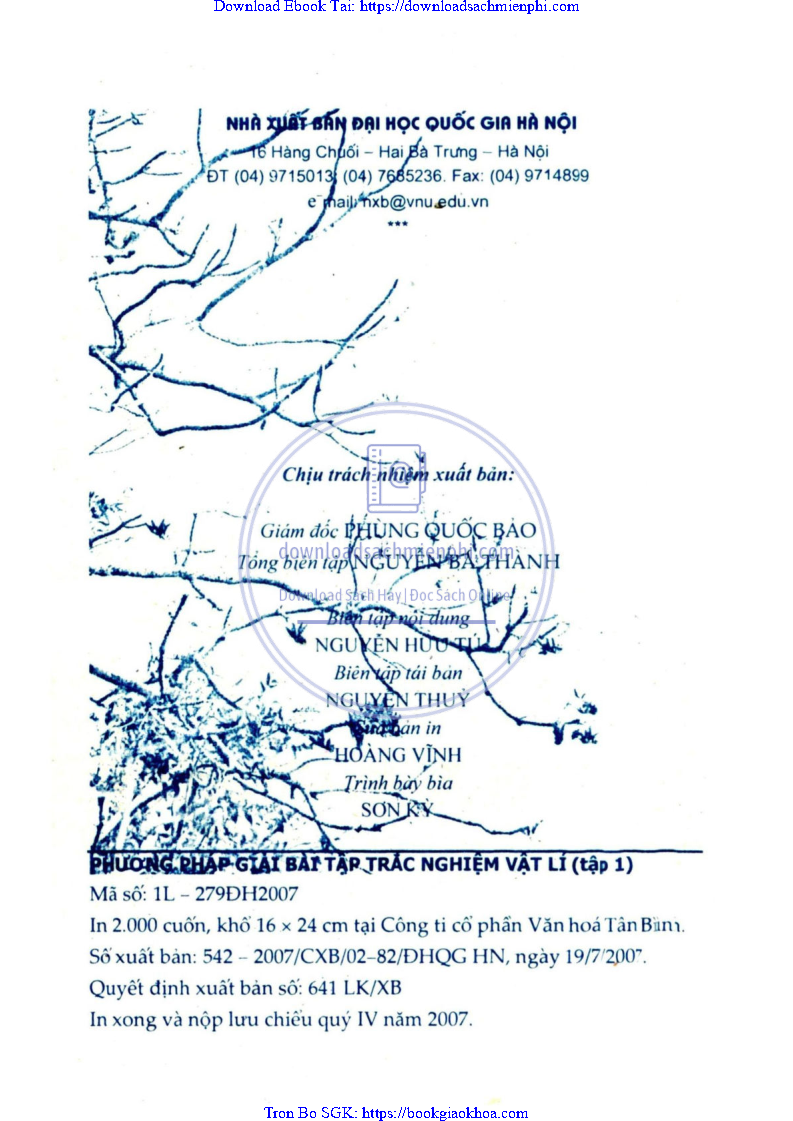 Download Ebook Tai: https://downloadsachmienphi.com
NHÀ XUẤT BẢN ĐẠI HỌC QUỐC GIA HÀ NỘI
16 Hàng Chuối – Hai Bà Trưng – Hà Nội
ĐT (04) 9715013; (04) 7685236. Fax: (04) 9714899
e mail: nxb@vnu.edu.vn
***
Chịu trách nhiệm xuất bản:
Giám đốc PHÙNG QUỐC BẢO
downloadsachmienphi.com
Tổng biên tập NGUYỄN BÁ THÀNH
Download Sách Hay | Đọc Sách Online
Biên tập nội dung
NGUYỄN HỮU TÚ
Biên tập tái bản
NGUYỄN THUỶ
Sửa bản in
HOÀNG VĨNH
Trình bày bìa
SƠN KỲ
PHƯƠNG PHÁP GIẢI BÀI TẬP TRẮC NGHIỆM VẬT LÍ (tập 1)
Mã số: 1L – 279ĐH2007
In 2.000 cuốn, khổ 16 × 24 cm tại Công ti cổ phần Văn hoá Tân
Số xuất bản: 542 – 2007/CXB/02–82/ĐHQG HN, ngày 19/7/2007.
Quyết định xuất bản số: 641 LK/XB
In xong và nộp lưu chiểu quý IV năm 2007.
Tron Bo SGK: https://bookgiaokhoa.com